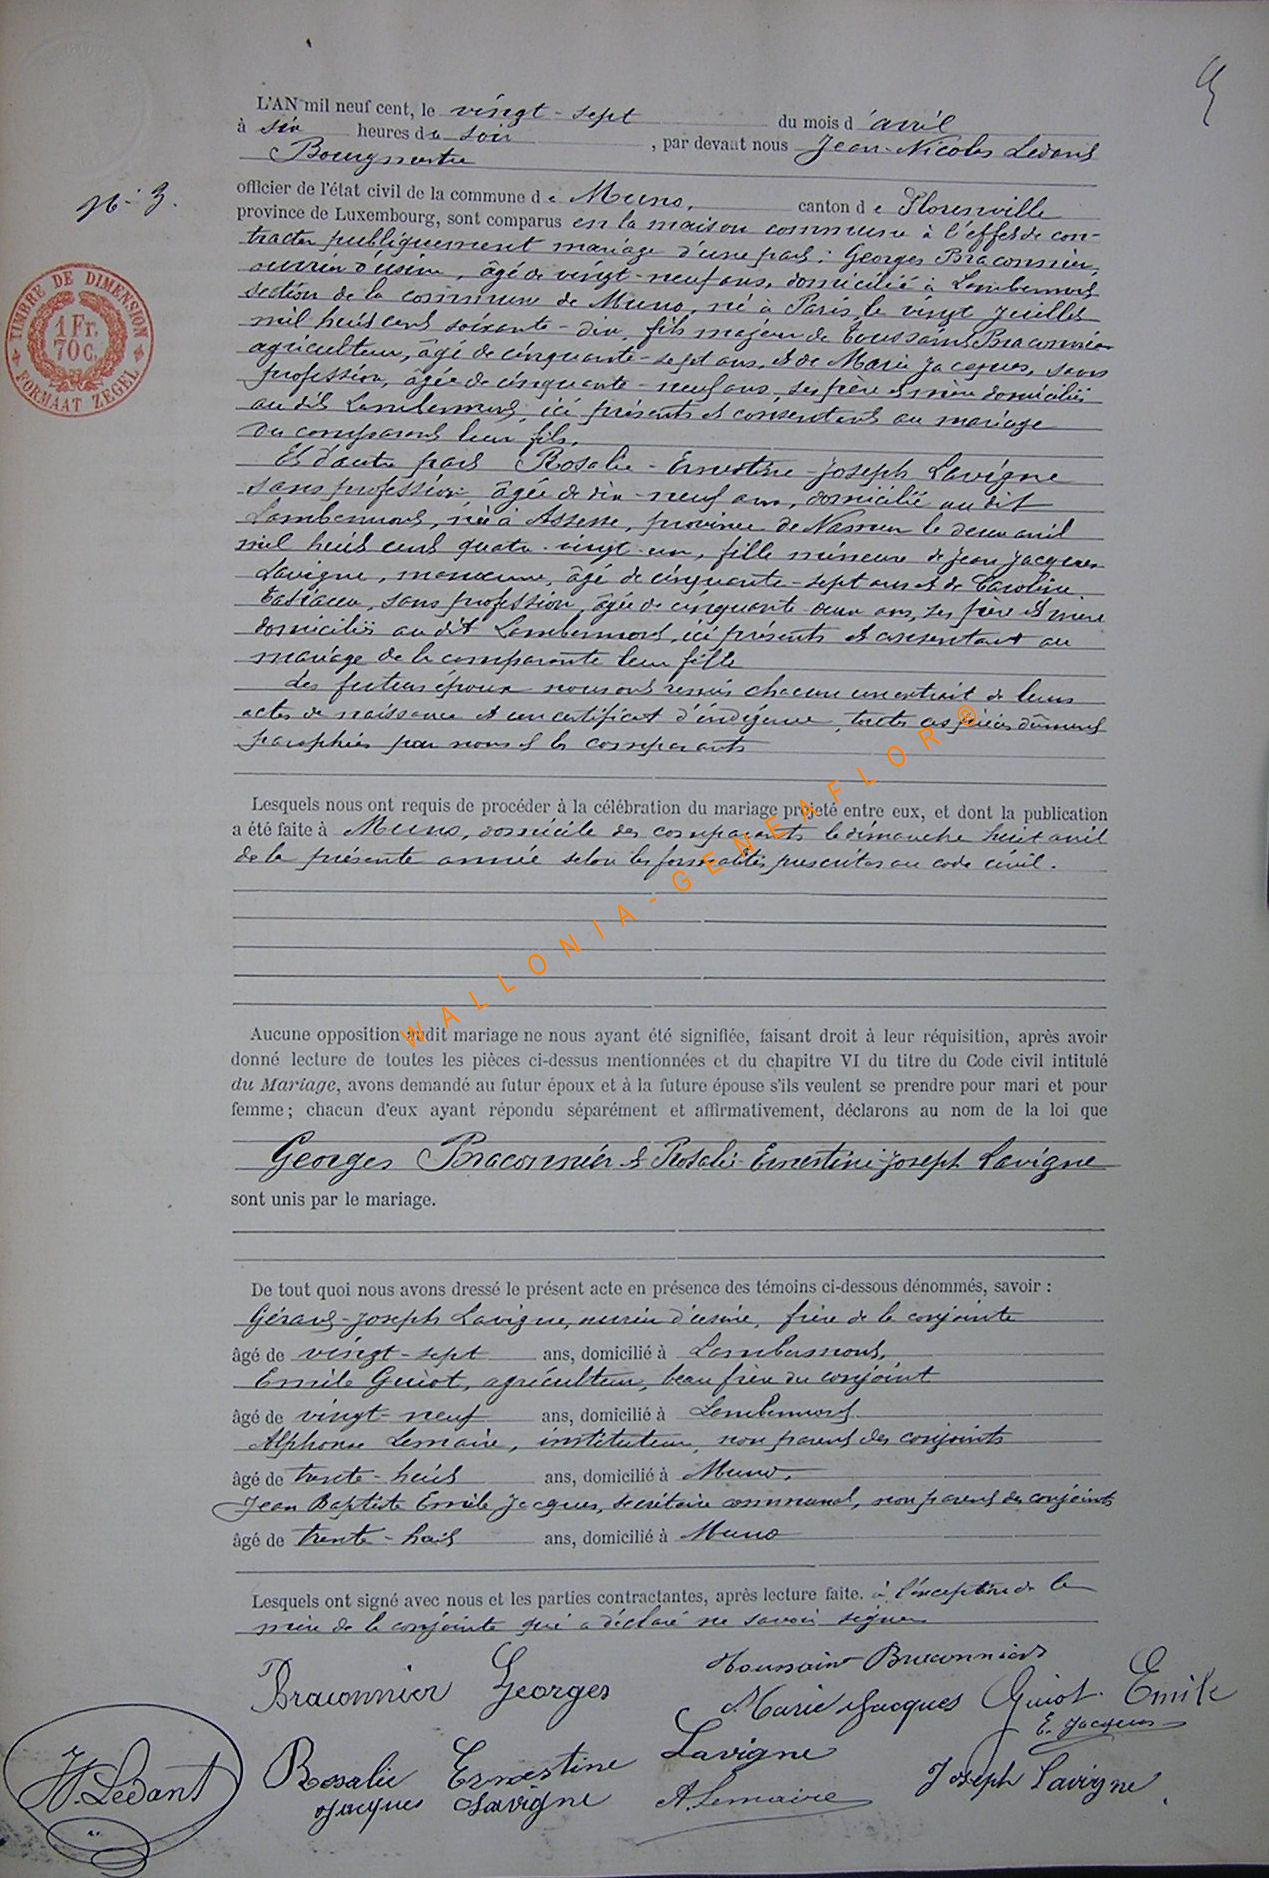 L'AN mil neuf cent, le vingt-sept du mois d'avril
à six heures du soir, par devant nous Jean-Nicolas Ledant
Bourgmestre
N° 3.
officier de l'état civil de la commune de Muno, canton de Florenville
province de Luxembourg, sont comparus en la maison commune à l'effet de con-
tracter publiquement mariage d'une part : Georges Braconnier,
ouvrier d'usine, âgé de vingt-neuf ans, domicilié à Lambermont
section de la commune de Muno, né à Paris le vingt juillet
mil huit cent soixante-dix, fils majeur de Toussaint Braconnier
agriculteur, âgé de cinquante-sept ans, et de Marie Jacques, sans
profession, âgée de cinquante-neuf ans, ses père et mère domiciliés
au dit Lambermont, ici présents et consentants au mariage
du comparant leur fils.
Et d'autre part Rosalie-Ernestine-Joseph Lavigne
sans profession, âgée de dix-neuf ans, domiciliée au dit
Lambermont, née à Assesse, province de Namur le deux avril
mil huit cent quatre-vingt-un, fille mineure de Jean Jacques
Lavigne, manoeuvre, âgé de cinquante-sept ans et de Caroline
Tasiaux, sans profession, âgée de cinquante deux ans, ses père et mère
domiciliés au dit Lambermont, ici présents et consentant au
mariage de la comparante leur fille
Les futurs époux nous ont remis chacun un extrait de leurs
actes de naissance et un certificat d'indigence, toutes ces pièces dûment
paraphées par nous et les comparants
Lesquels nous ont requis de procéder à la célébration du mariage projeté entre eux, et dont la publication
a été faite à Muno, domicile des comparants le dimanche huit avril
de la présente année selon les formalités prescrites au code civil.
Aucune opposition audit mariage ne nous ayant été signifiée, faisant droit à leur réquisition, après avoir
donné lecture de toutes les pièces ci-dessus mentionnées et du chapitre VI du titre du Code civil intitulé
du Mariage, avons demandé au futur époux et à la future épouse s'ils veulent se prendre pour mari et pour
femme ; chacun d'eux ayant répondu séparément et affirmativement, déclarons au nom de la loi que
Georges Braconnier et Rosalie-Ernestine-Joseph Lavigne
sont unis par le mariage.
De tout quoi nous avons dressé le présent acte en présence des témoins ci-dessous dénommés, savoir :
Gérard-Joseph Lavigne, ouvrier d'usine, frère de la conjointe
âgé de vingt-sept ans, domicilié à Lambermont,
Emile Guiot, agriculteur, beau frère du conjoint
âgé de vingt-neuf ans, domicilié à Lambermont
Alphonse Lemaire, instituteur, non parent des conjoints
âgé de trente-huit ans, domicilié à Muno,
Jean Baptiste Emile Jacques, secrétaire communal, non parent des conjoints
âgé de trente-huit ans, domicilié à Muno
Lesquels ont signé avec nous et les parties contractantes, après lecture faite. à l'exception de la
mère de la conjointe qui a déclaré ne savoir signer
Braconnier Georges
Toussaint Braconnier
Marie Jacques Guiot Emile
E. Jacques
Rosalie Ernestine Lavigne
Jacques Lavigne
A. Lemaire
Joseph Lavigne
JN. Ledant
TIMBRE DE DIMENSION
1 Fr.
70 C.
FORMAAT ZEGEL
WALLONIA-GENEAFLOR ®